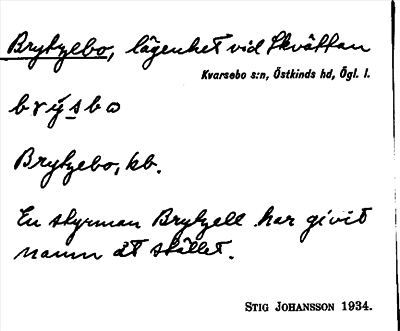 Brytzebo, lägenhet vid Skvättan
Kvarsebo s:n, Östkinds hd, Ögl. l.
brýsbo
Brytzebo, kb.
En styrman Brytzell har givit
namn åt stället.
STIG JOHANSSON 1934.